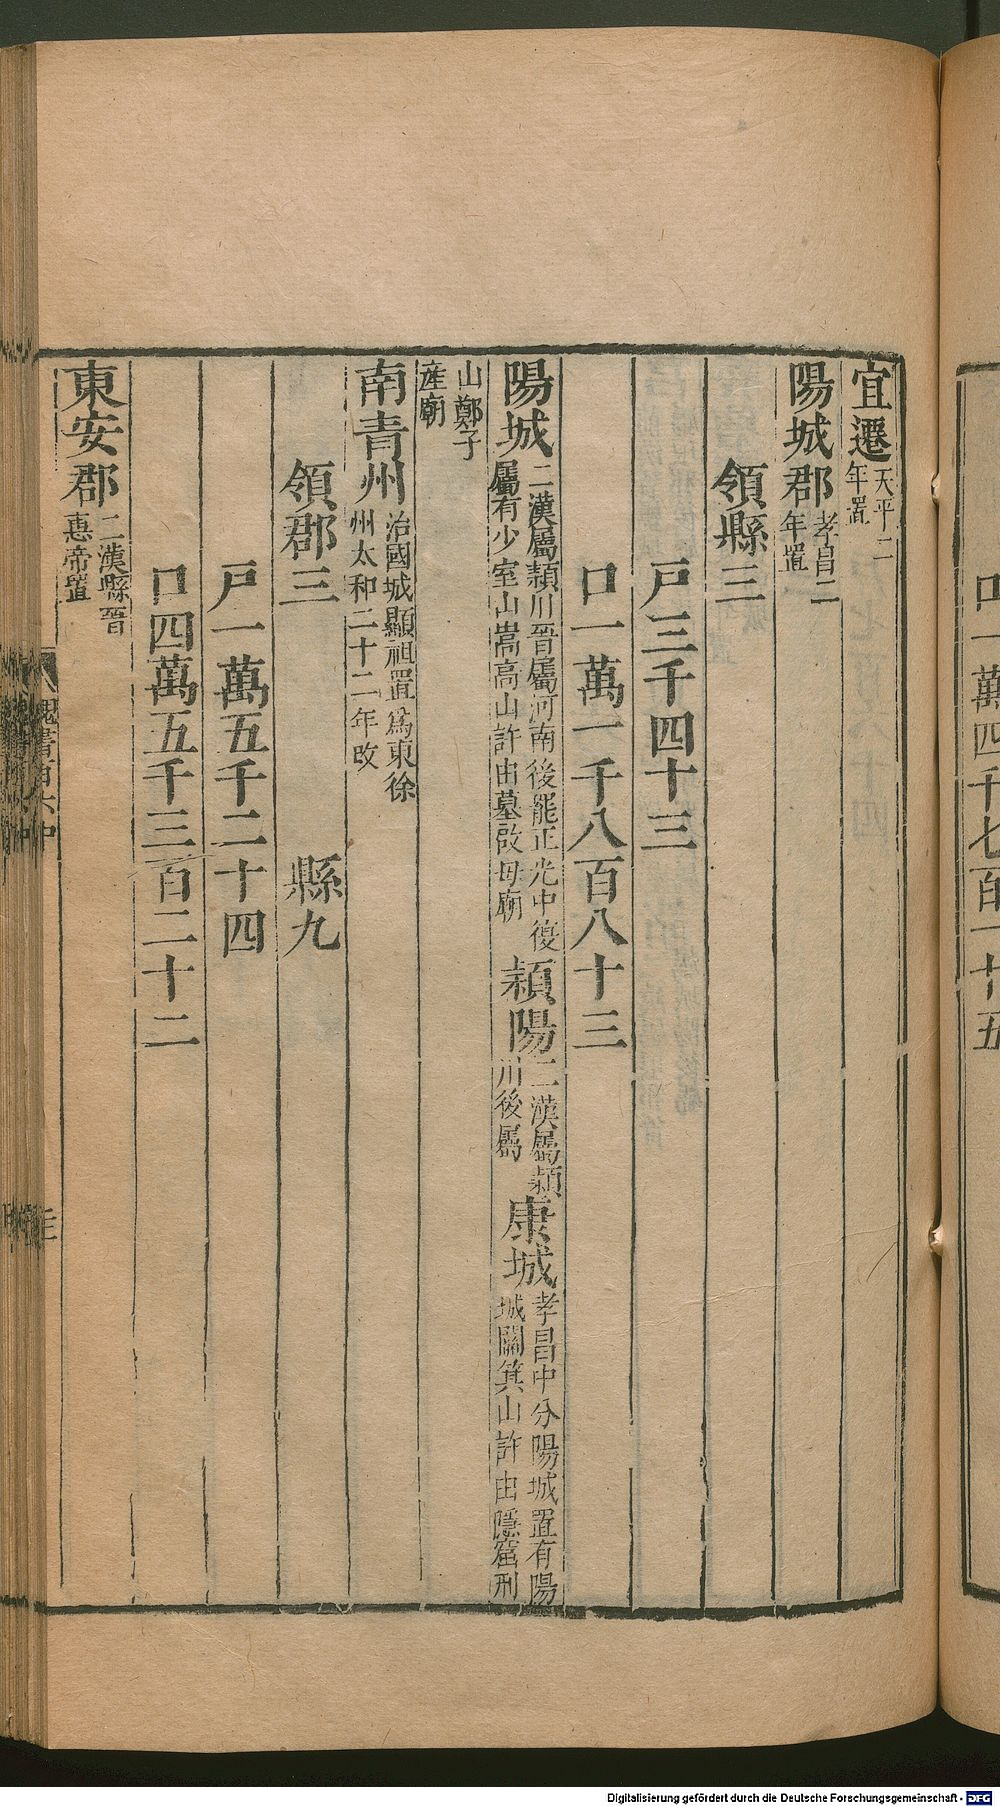 宜遷天平二年置
陽城郡孝昌二年置
領縣三
戸三千四十三
口一萬一千八百八十三
陽城二漢屬潁川晉屬河南後罷正光中復屬有少室山嵩高山許由墓啟母廟潁陽二漢屬潁川後屬康城孝昌中分陽城置有陽城關箕山許由隱窟刑
山鄭子產廟
南青州治國城顯祖置爲東徐州太和二十二年改
領郡三 縣九
戸一萬五千二十四
口四萬五千三百二十二
東安郡二漢縣晉惠帝置
魏書百六中
口一萬四千七百一十五
Digitalisierung gefördert durch die Deutsche Forschungsgemeinschaft - DFG